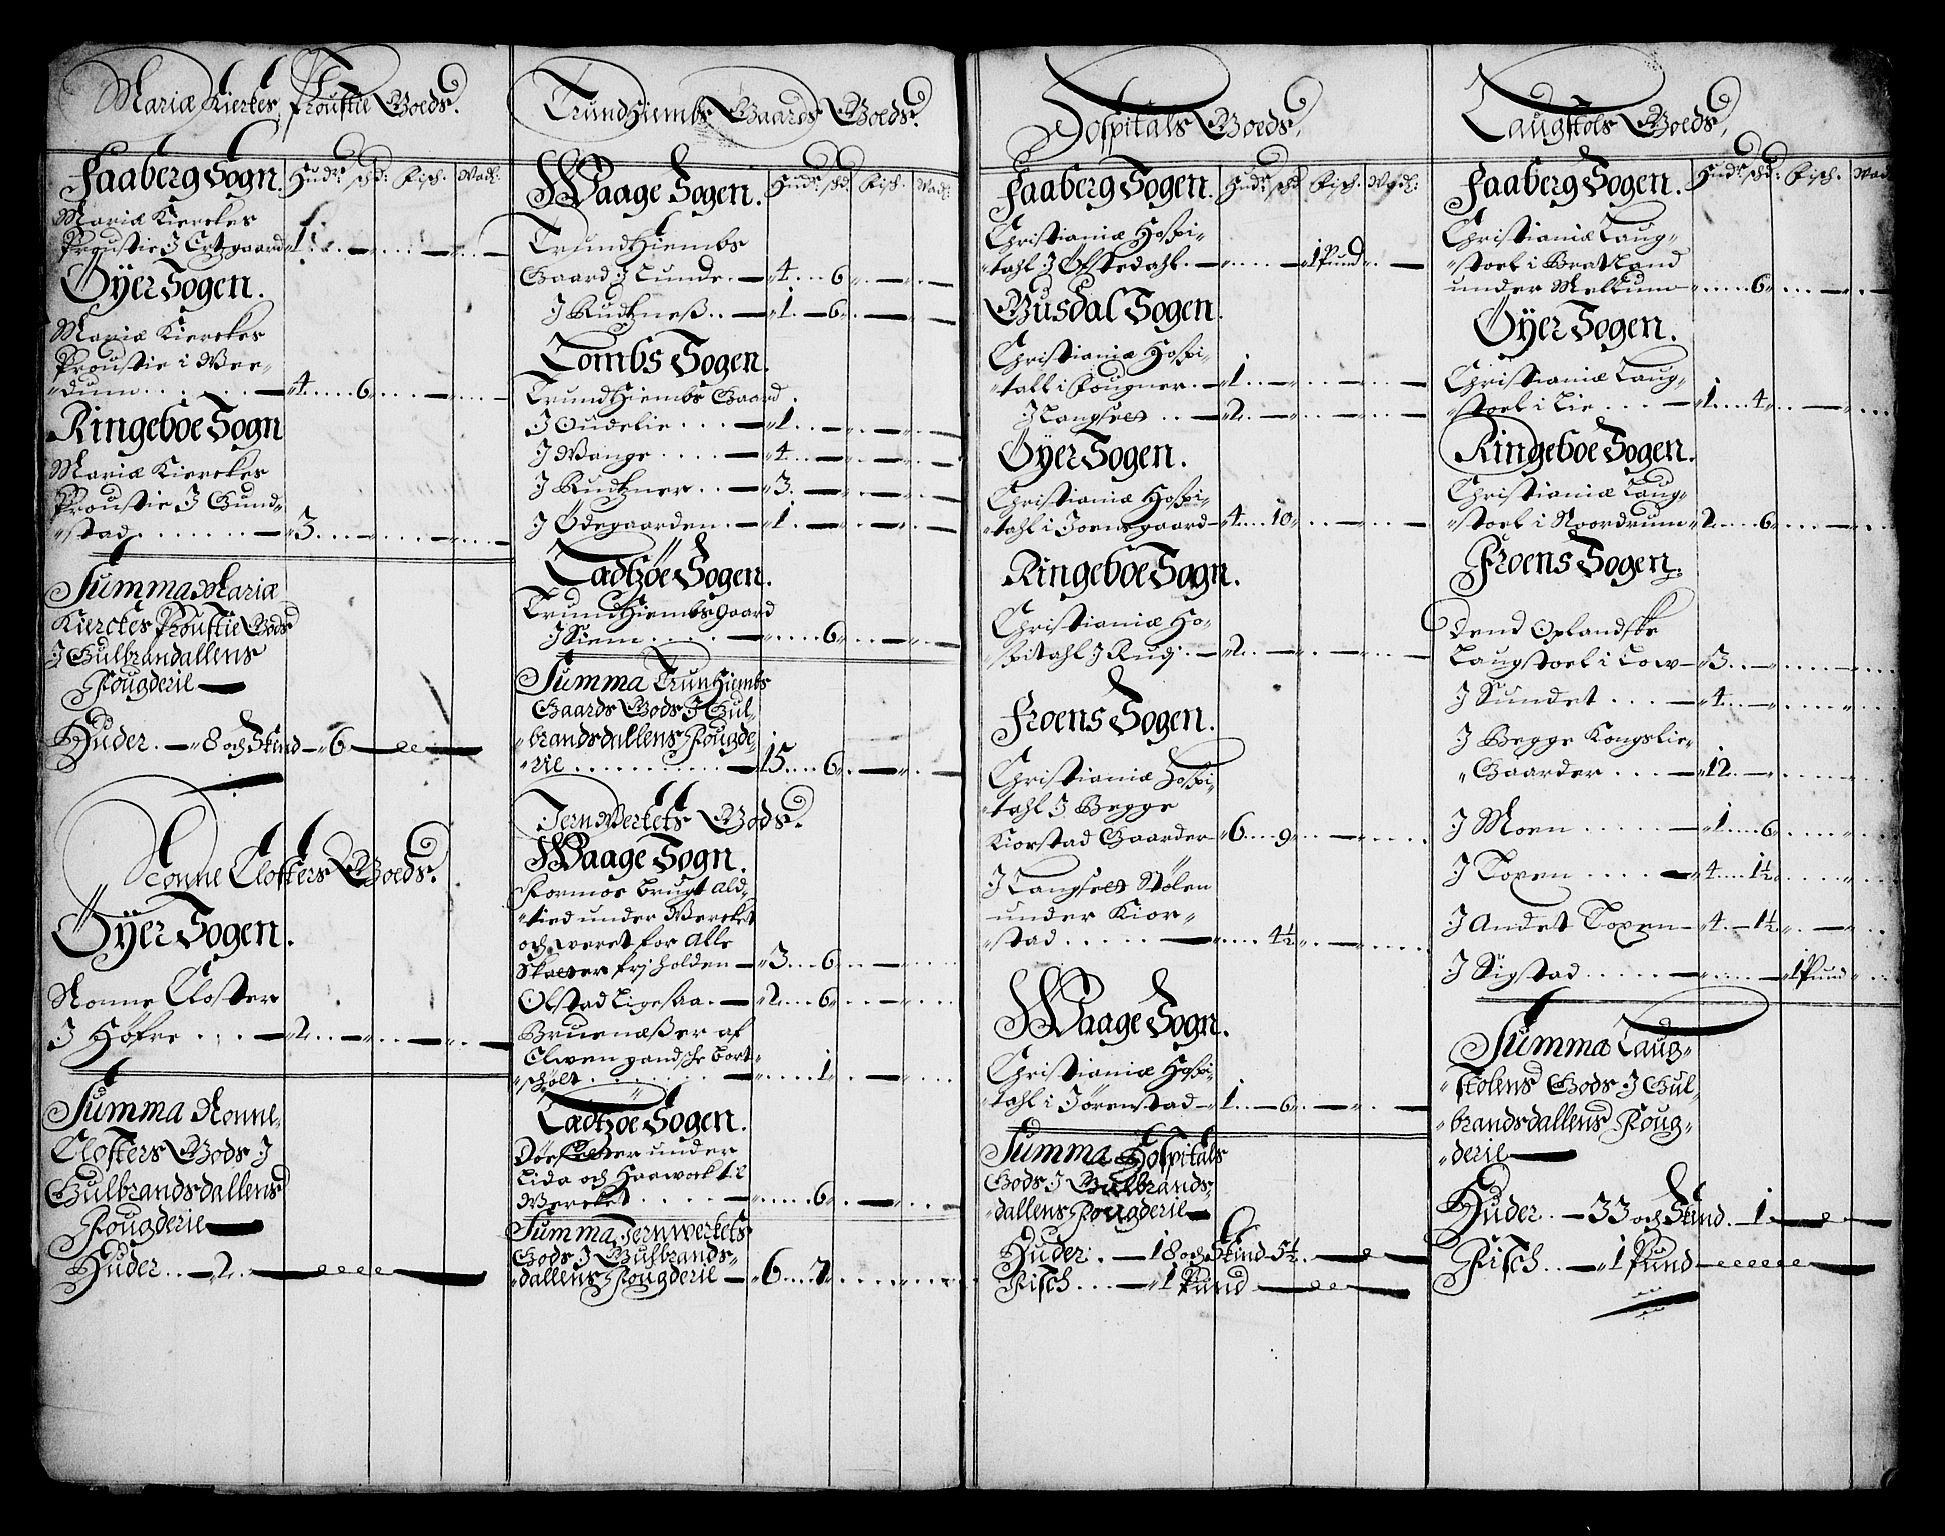 Mariæ Kierkes Proustie Goeds.
Faaberg Sogn. Hudr: schd: Fisch. Wadl:
Mariæ Kierckes
Proustie J Crtzgaard 1
Öÿer Sogen.
Mariæ Kierckes
Proustie i Wee-
"dum 4 6
Ringeboe Sogn
Mariæ Kierckes
Proustie J Gund-
"stad 3
Summa Mariæ
Kierckes Proustie Gods
J Gulbrandallens
Fougderie
Huder. 8 och Skind 6
Nonne Closters Goeds.
Öÿer Sogen.
Nonne Closter
J Høfre 2
Summa Nonne-
Closters Gods J
Gulbrandsdallens
Fougderie
Huder 2
TrundHiembs Gaards Goeds.
Waage Sogen. Hudr: schd: Fisch. Wadl:
TrundHiembs
Gaard J Lunde 4 6
J Rudtzneß 1 6
Lombs Sogen.
TrundHiembs Gaard.
J Gudelie 1
J Wange 4
J Rudtzner 3
J Ödegaarden 1
Ladtzöe Sogen.
TrundHiembsgaard
J Siem 6
Summa TrunHiembs
Gaards Gods J Gul-
"brandsdallens Fougde-
"rie 15 6
JernWerkets Gods.
Waage Sogn.
Formoe brugt ald-
"tied under Wercket
och weret for alle
Skatter frj holden 3 6
Olstad Ligesaa 2 6
Bruenæßer af
Elwen gandsche bort-
"schølt 1
Ladtzöe Sogen.
under
Lida och Haawock til
Wercket 6
Summa Jernwerkets
Gods J Gulbrands-
"dallens Fougderie 6 7
Hospitals Goeds,
Faaberg Sogen. Hudr: schd: Fisch. Wadl:
Christianiæ Hospi-
"tahl J Øfstedahl 1 Pund
Gusdal Sogen.
Christianiæ Hospi-
"tall i Fougner 1
J Langseet 2
Öÿer Sogen.
Christianiæ Hospi-
"tahl i Joensgaard 4 10
Ringeboe Sogn.
Christianiæ Ho-
"spitahl J Rudj 2
Froens Sogen.
Christianiæ Hospi-
"tahl J Begge
Kiorstad Gaarder 6 9
J Langseet Stølen
under Kior-
"stad 4½
Waage Sogn.
Christianiæ Hospi-
"tahl i Jörenstad 1 6
Summa Hospitals
Gods J Gulbrands-
"dallens Fougderie
Huder. 18 och Skind 5½
Fisch 1 Pund
Laugstols Goeds,
Faaberg Sogen. Hudr: schd: Fisch. Wadl:
Christianiæ Laug-
"stoel i Bratland
under Mellum 6
Öÿer Sogen.
Christianiæ Laug-
"stoel i Lie 1 4
Ringeboe Sogen.
Christianiæ Laug-
"stoel i Noordrum 2 6
Froens Sogen.
Dend Oplandske
Laugstoel i Low 3
J Sundet 4
J Begge Kongslie-
"Gaarder 12
J Moen 1 6
J Loxen 4 1½
J Andet Loxen 4 1½
J Sigstad 1 Pund
Summa Laug-
"stolens Gods J Gul-
"brandsdallens Foug-
"derie
Huder 33 och Skind. 1
Fisch 1 Pund